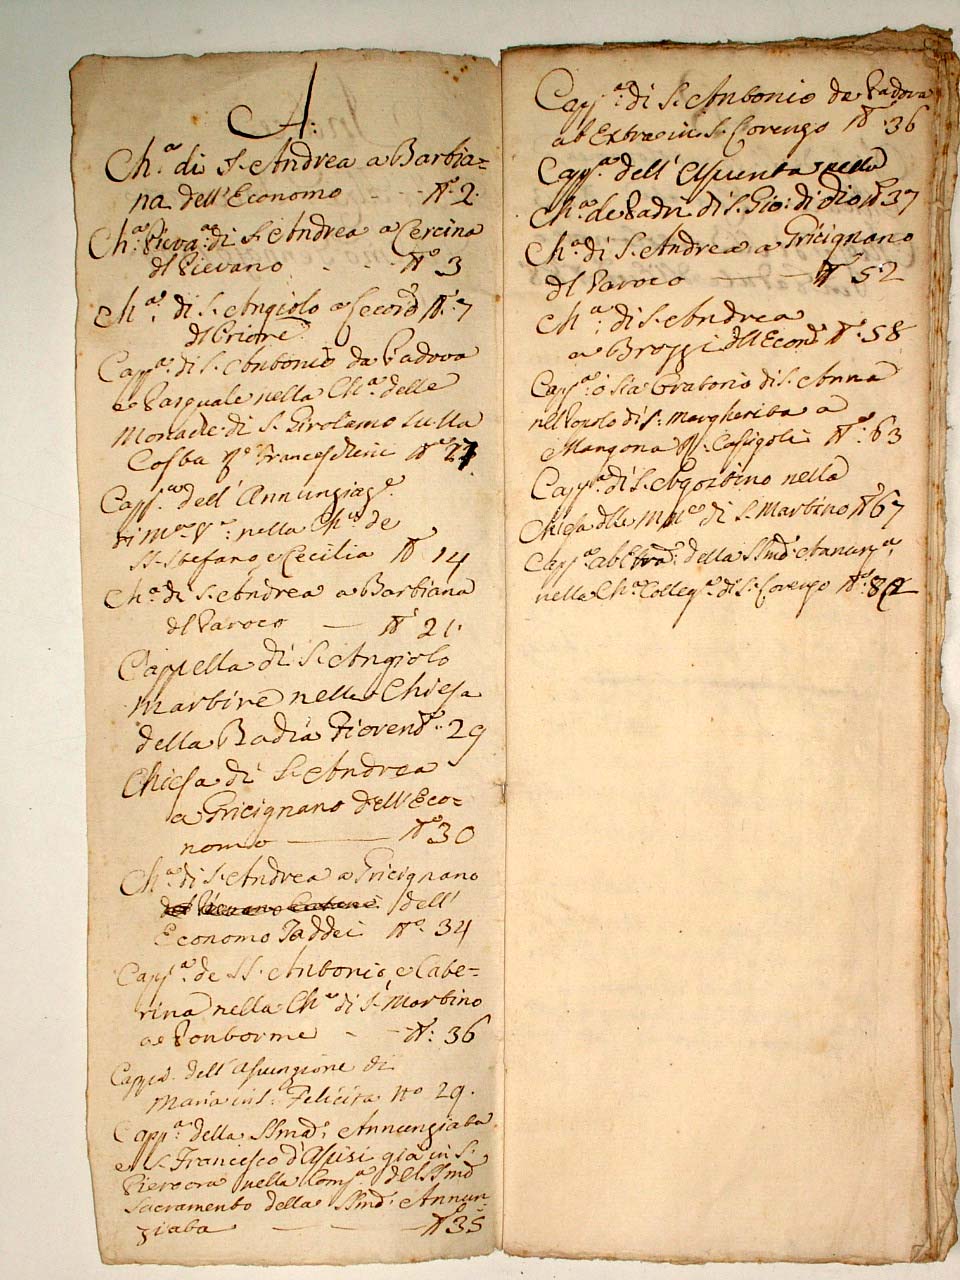 A:
Ch.ª di S. Andrea a Barbia=
na dell'Economo - - N.º 2.
Ch.ª Pieva.ª di S. Andrea a Cercina
del Pievano - - - N.º 3
Ch.ª di S. Angiolo a N.º 7
del Priore
Capp.ª di S. Antonio da Padova
e Pasquale nella Ch.ª delle
Monache di S. Girolamo sulla
Costa N.º
Capp.ª dell' Annunziaz.e
di M.ª V.e nella Ch.ª de
SS. Stefano e Cecilia N.º 14
Ch.ª di S. Andrea a Barbiana
del Paroco — N.º 21.
Cappella di S. Angiolo
Martire nella Chiesa
della Badia Fioren.ª N.º 29
Chiesa di S. Andrea
a Gricignano dell'Eco=
nomo — N.º 30
Ch.ª di S. Andrea a Gricignano
dell'
Economo Taddei N.º 34
Capp.ª de SS. Antonio, e Cate=
rina nella Ch.ª di S. Martino
a Pontorme - - N.º: 36
Capp.ª dell'Assunzione di
Maria in S. Felicita N.º 29.
Capp.ª della SSma Annunziata
e S. Francesco d'Assisi già in S.
Pier nella Comp.ª del SSmo
Sacramento della SSma Annun=
ziata — — — N.º 35
Capp.ª di S. Antonio da Padova
ab Extra in S. Lorenzo N.º 36
Capp.ª dell' Assunta nella
Ch.ª de Padri di S. Gio: di Dio N.º 37
Ch.ª di S. Andrea a Gricignano
del Paroco — N.º 52
Ch.ª di S. Andrea
a Brozzi dell'Econ.º N.º 58
Capp.ª o sia Oratorio di S. Anna
nel Popolo di S. Margherita a
Mangona N.º: 63
Capp.ª di S. Agostino nella
Chiesa delle M.che di S. Martino N.º 67
Capp.ª ab Extra della SSma Annunz.ª
nella Ch.ª Colleg.ª di S. Lorenzo N.º